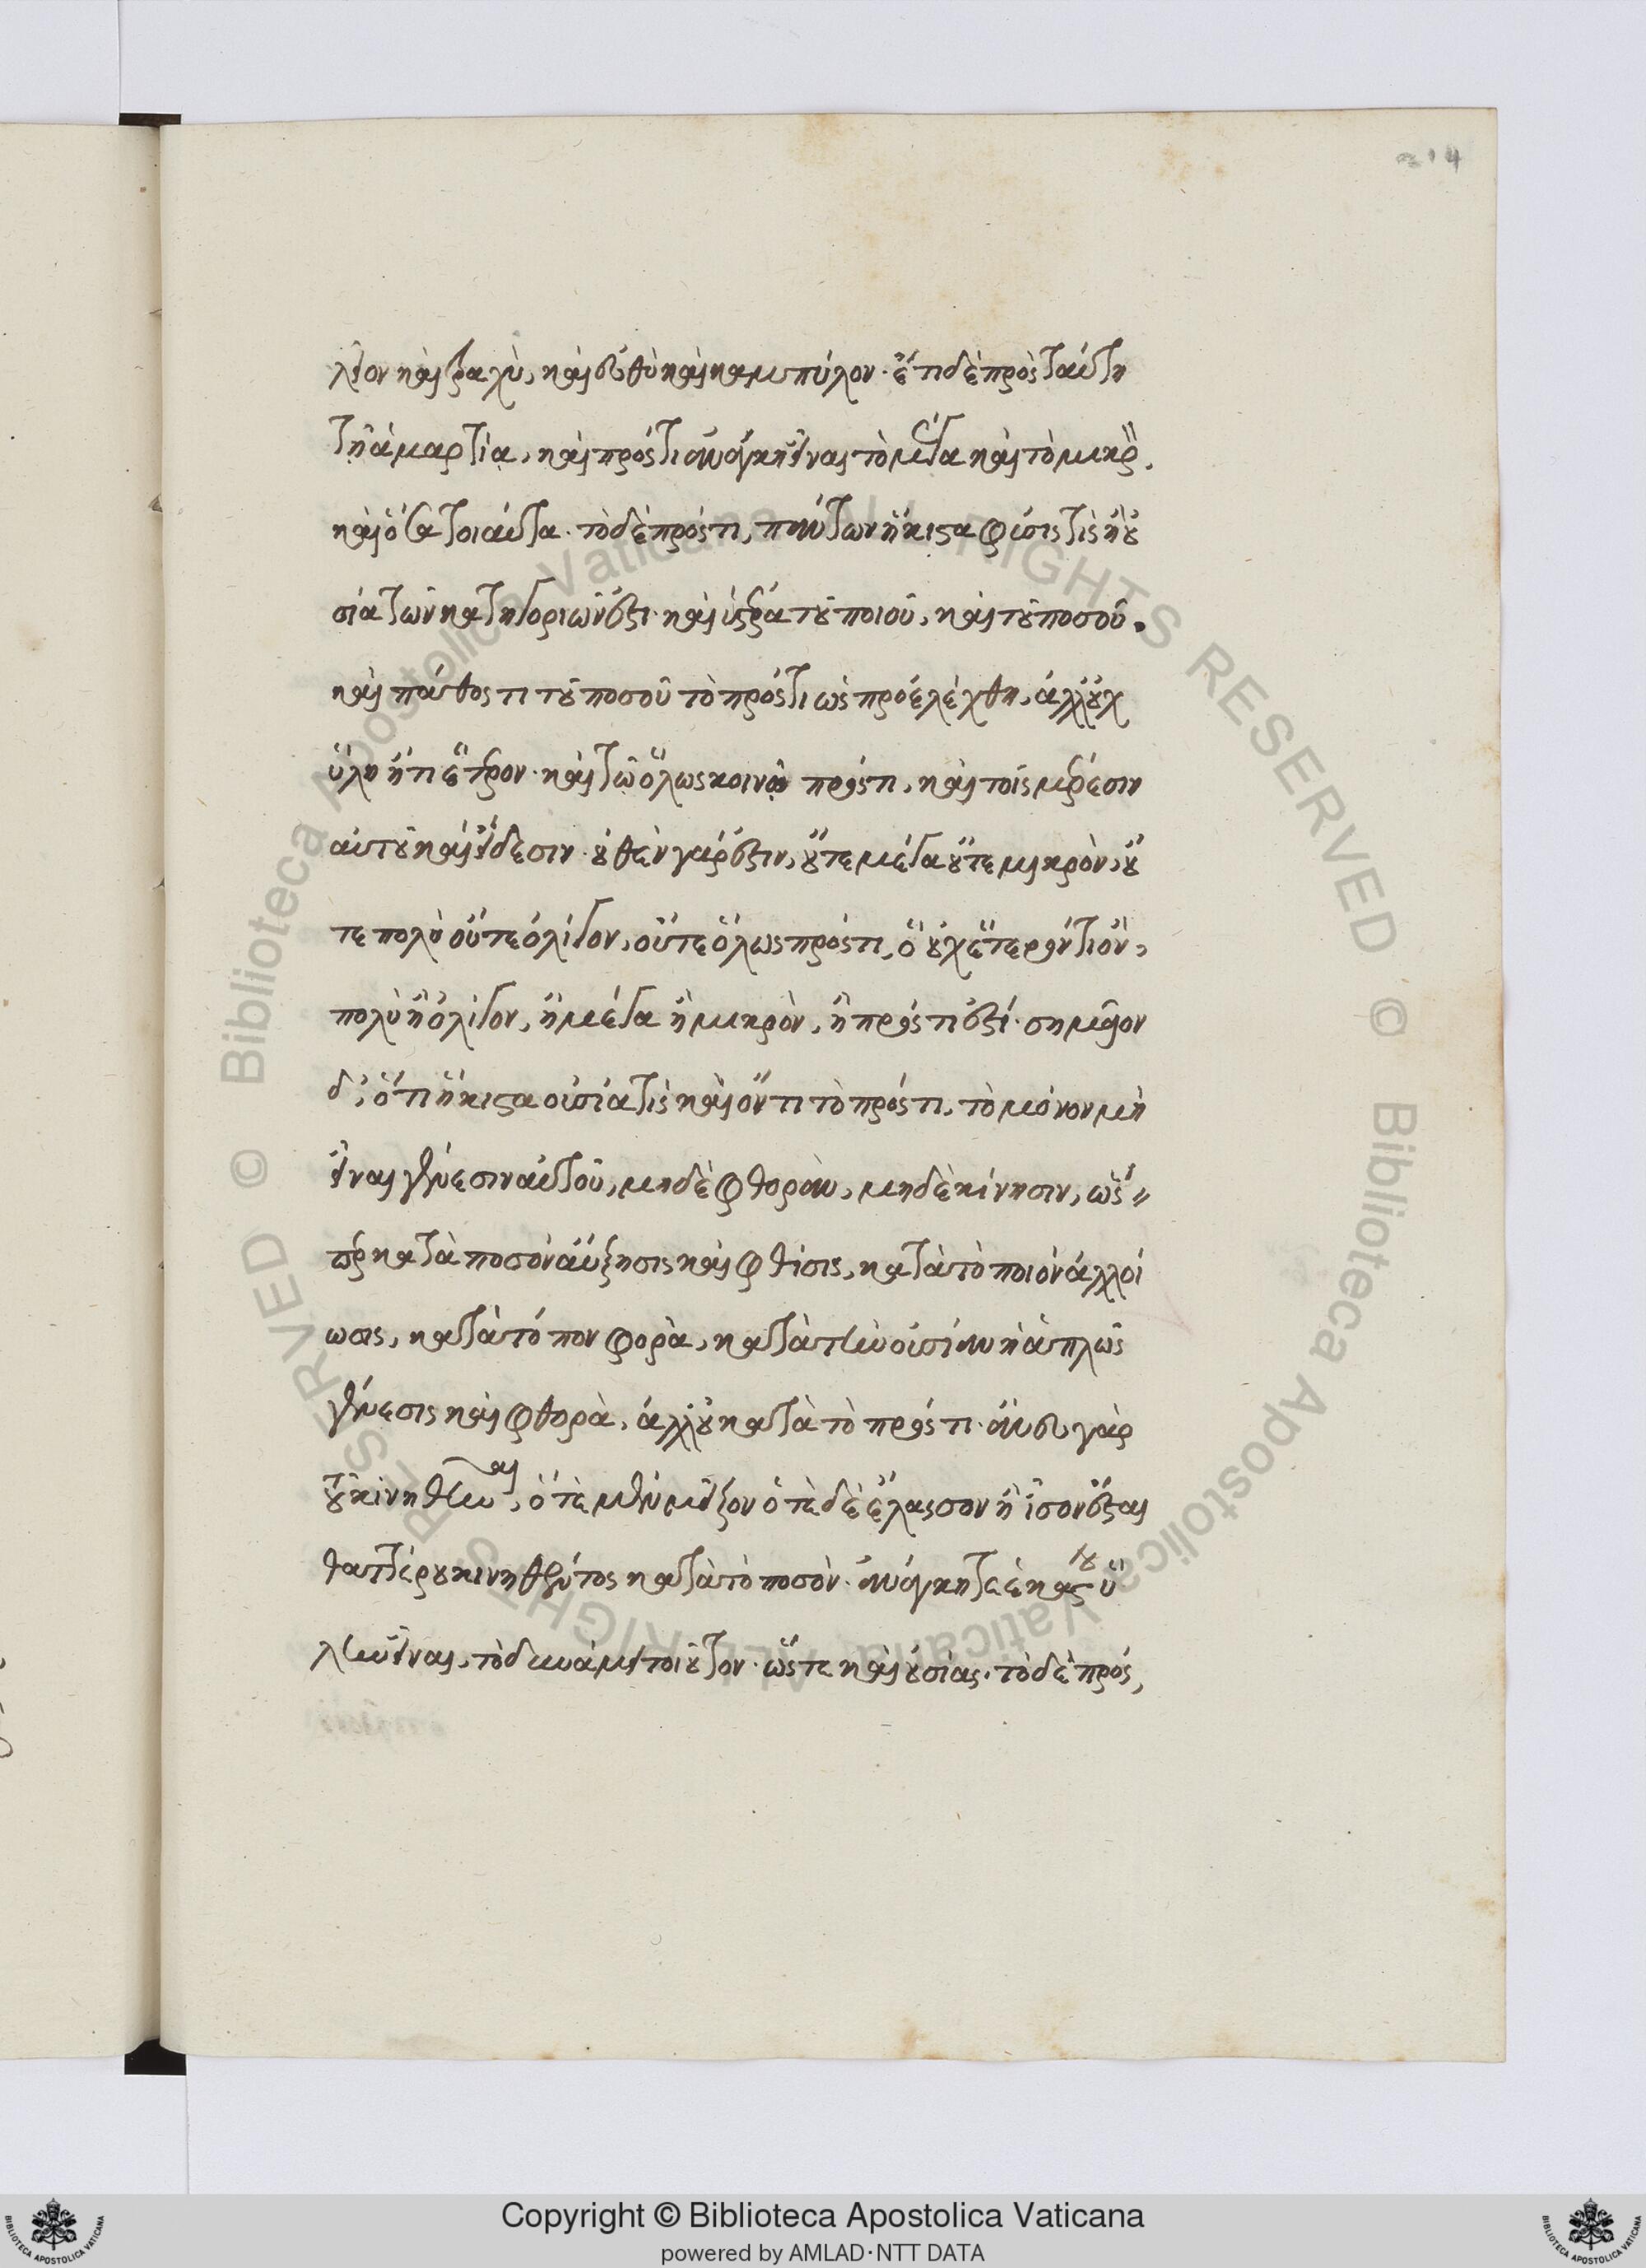 214
λεῖον καὶ τραχὺ, καὶ εὐθὺ καὶ καμπύλον. ἔτι δὲ πρὸς ταύτη
τῆ ἁμαρτία, καὶ πρός τι ἀνάγκη εἶναι τὸ μέγα καὶ τὸ μικρὸν,
καὶ ὅσα τοιαῦτα. τὸ δὲ πρός τι, πάντων ἥκιστα φύσις τίς ἢ οὐ
σία τῶν κατηγοριῶν ἐστι. καὶ ὑστέρα τοῦ ποιοῦ, καὶ τοῦ ποσοῦ.
καὶ πάθος τι τοῦ ποσοῦ τὸ πρός τι ὡς προελέχθη, ἀλλ' οὐχ
ὕλη ἤ τι ἕτερον. καὶ τῶ ὅλως κοινῶ πρός τι, καὶ τοῖς μέρεσιν
αὐτοῦ καὶ εἴδεσιν. οὐθὲν γάρ ἐστιν, οὔτε μέγα οὔτε μικρὸν, οὔ
τε πολὺ οὔτε ὀλίγον, οὔτε ὅλως πρός τι, ὃ οὐχ ἕτερόν τι ὂν,
πολὺ ἢ ὀλίγον, ἢ μέγα ἢ μικρὸν, ἢ πρός τι ἐστί. σημεῖον
δ', ὅτι ἥκιστα οὐσία τὶς καὶ ὄν τι τὸ πρός τι, τὸ μόνον μὴ
εἶναι γένεσιν αὐτοῦ, μηδὲ φθορὰν, μηδὲ κίνησιν, ὥσ
περ κατὰ ποσὸν αὔξησις καὶ φθίσις, κατὰ τὸ ποιὸν ἀλλοί
ωσις, κατὰ τόπον φορὰ, κατὰ τὴν οὐσίαν ἡ ἁπλῶς
γένεσις καὶ φθορὰ, ἀλλ' οὐ κατὰ τὸ πρός τι. ἄνευ γὰρ
τοῦ κινηθῆναι, ὁτὲ μὲν μεῖζον ὁτὲ δὲ ἔλασσον ἢ ἴσον ἔσται
θατέρου κινηθέντος κατὰ τὸ ποσόν. ἀνάγκη τε ἑκάστου ὕ
λην εἶναι, τὸ δυνάμει τοιοῦτον. ὥστε καὶ οὐσίας. τὸ δὲ πρός